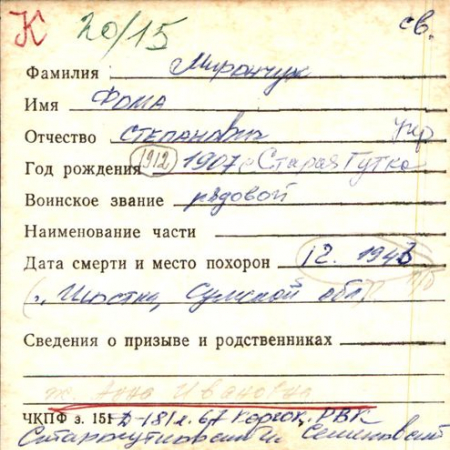 К 20/15 св.
Фамилия Мирончук
Имя Фома
Отчество Степанович укр
Год рождения (1912) 1907 с Старая Гутка
Воинское звание рядовой
Наименование части
Дата смерти и место похорон 12. 1943
г. Шостка, Сумской обл
Сведения о призыве и родственниках
ж. Анна Ивановна
ЧКПФ з. 151 Д-181 л. 67 РВК